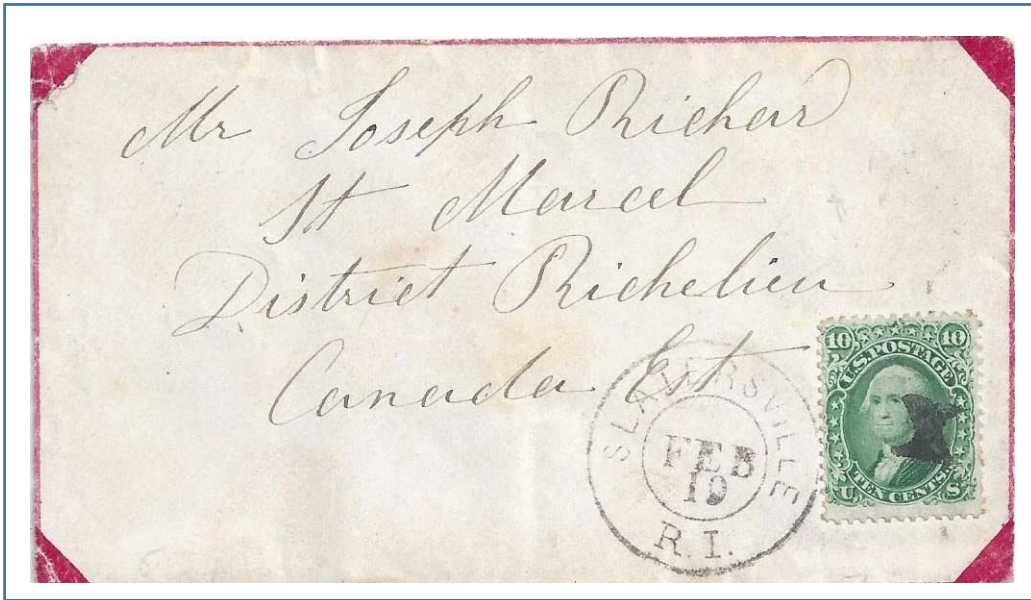 Mr Joseph Richar
St Marcel
District Richelieu
Canada Est
SLATERSVILLE
FEB
19
R.I.
10 10
U.S. POSTAGE
TEN CENTS.
U S